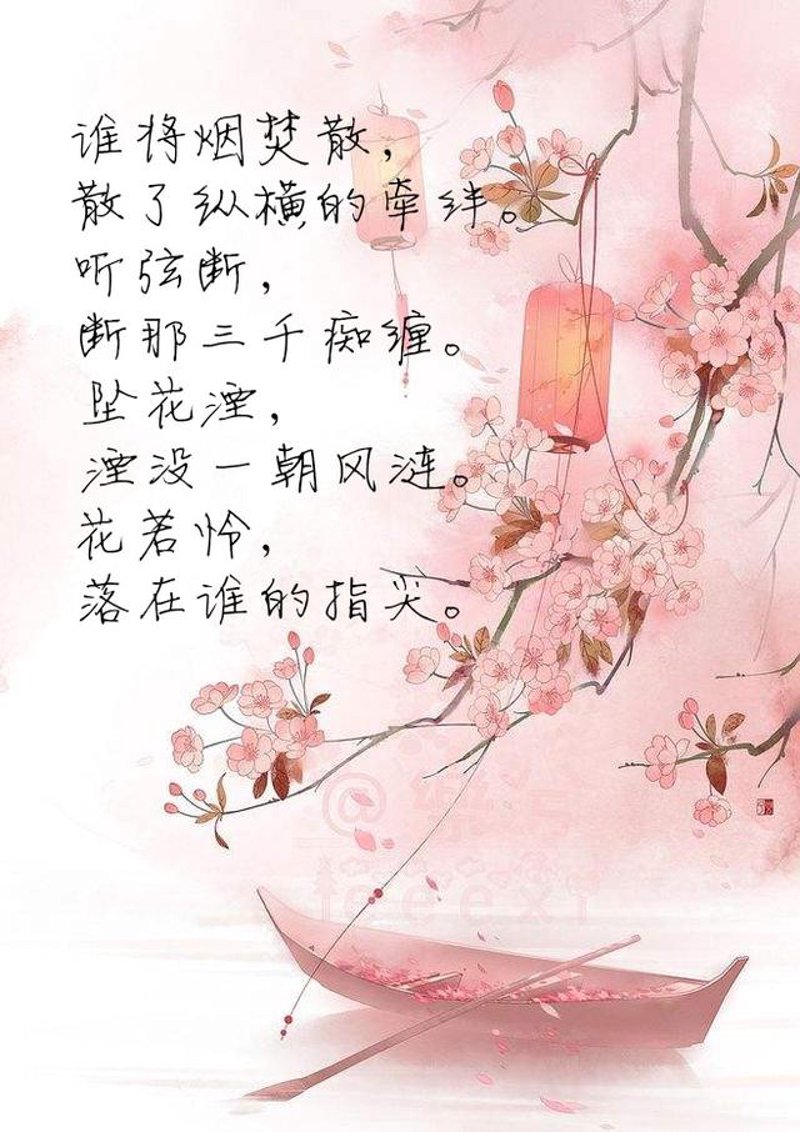 谁将烟焚散，
散了纵横的牵绊。
听弦断，
断那三千痴缠。
坠花湮，
湮没一朝风涟。
花若怜，
落在谁的指尖。